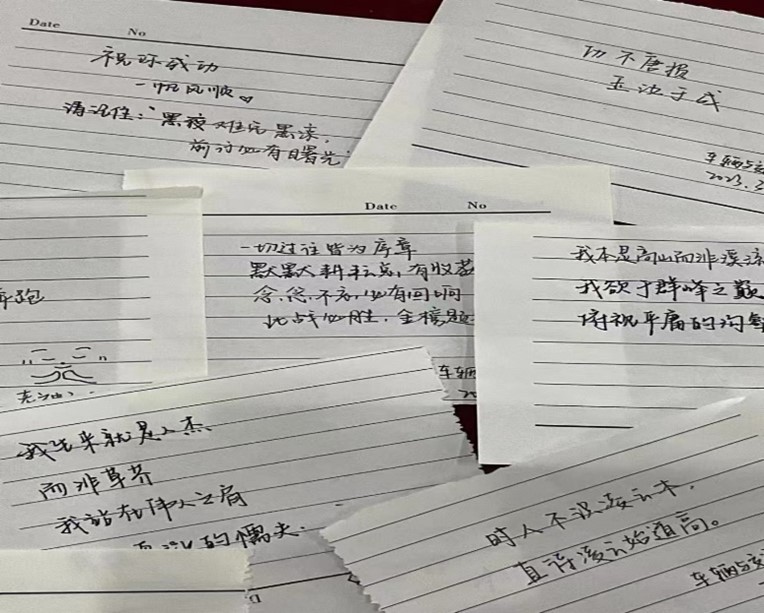 Date No
祝你成功
一帆风顺
请记住:“黑夜难免黑凉,
前行必有曙光
功不唐捐
玉汝于成
车辆与
2023.3
奔跑
加油
Date No
一切过往皆为序章
默默耕耘,有收获
念念不忘,必有回响
此战必胜,金榜题
车辆
我本是高山而非溪流
我欲于群峰之巅
俯视平庸的沟壑
我生来就是人杰
而非草芥
我站在伟人之肩
的懦夫.
时人不识凌云木,
直待凌云始道高。
车辆与交